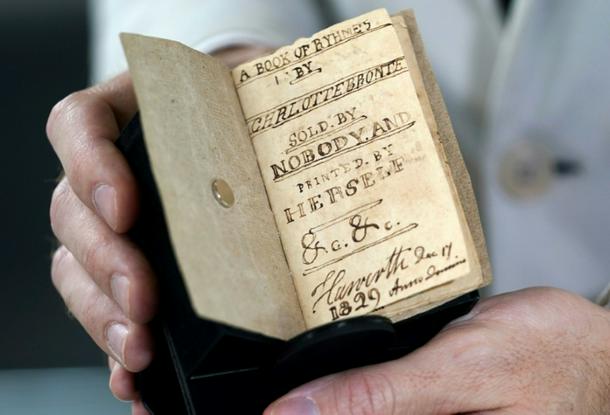 A BOOK OF RYHMES
BY
CHARLOTTE BRONTE
SOLD. BY.
NOBODY. AND
PRINTED. BY
HERSELF
&c. &c.
Haworth Dec 17
1829 Anno Domini